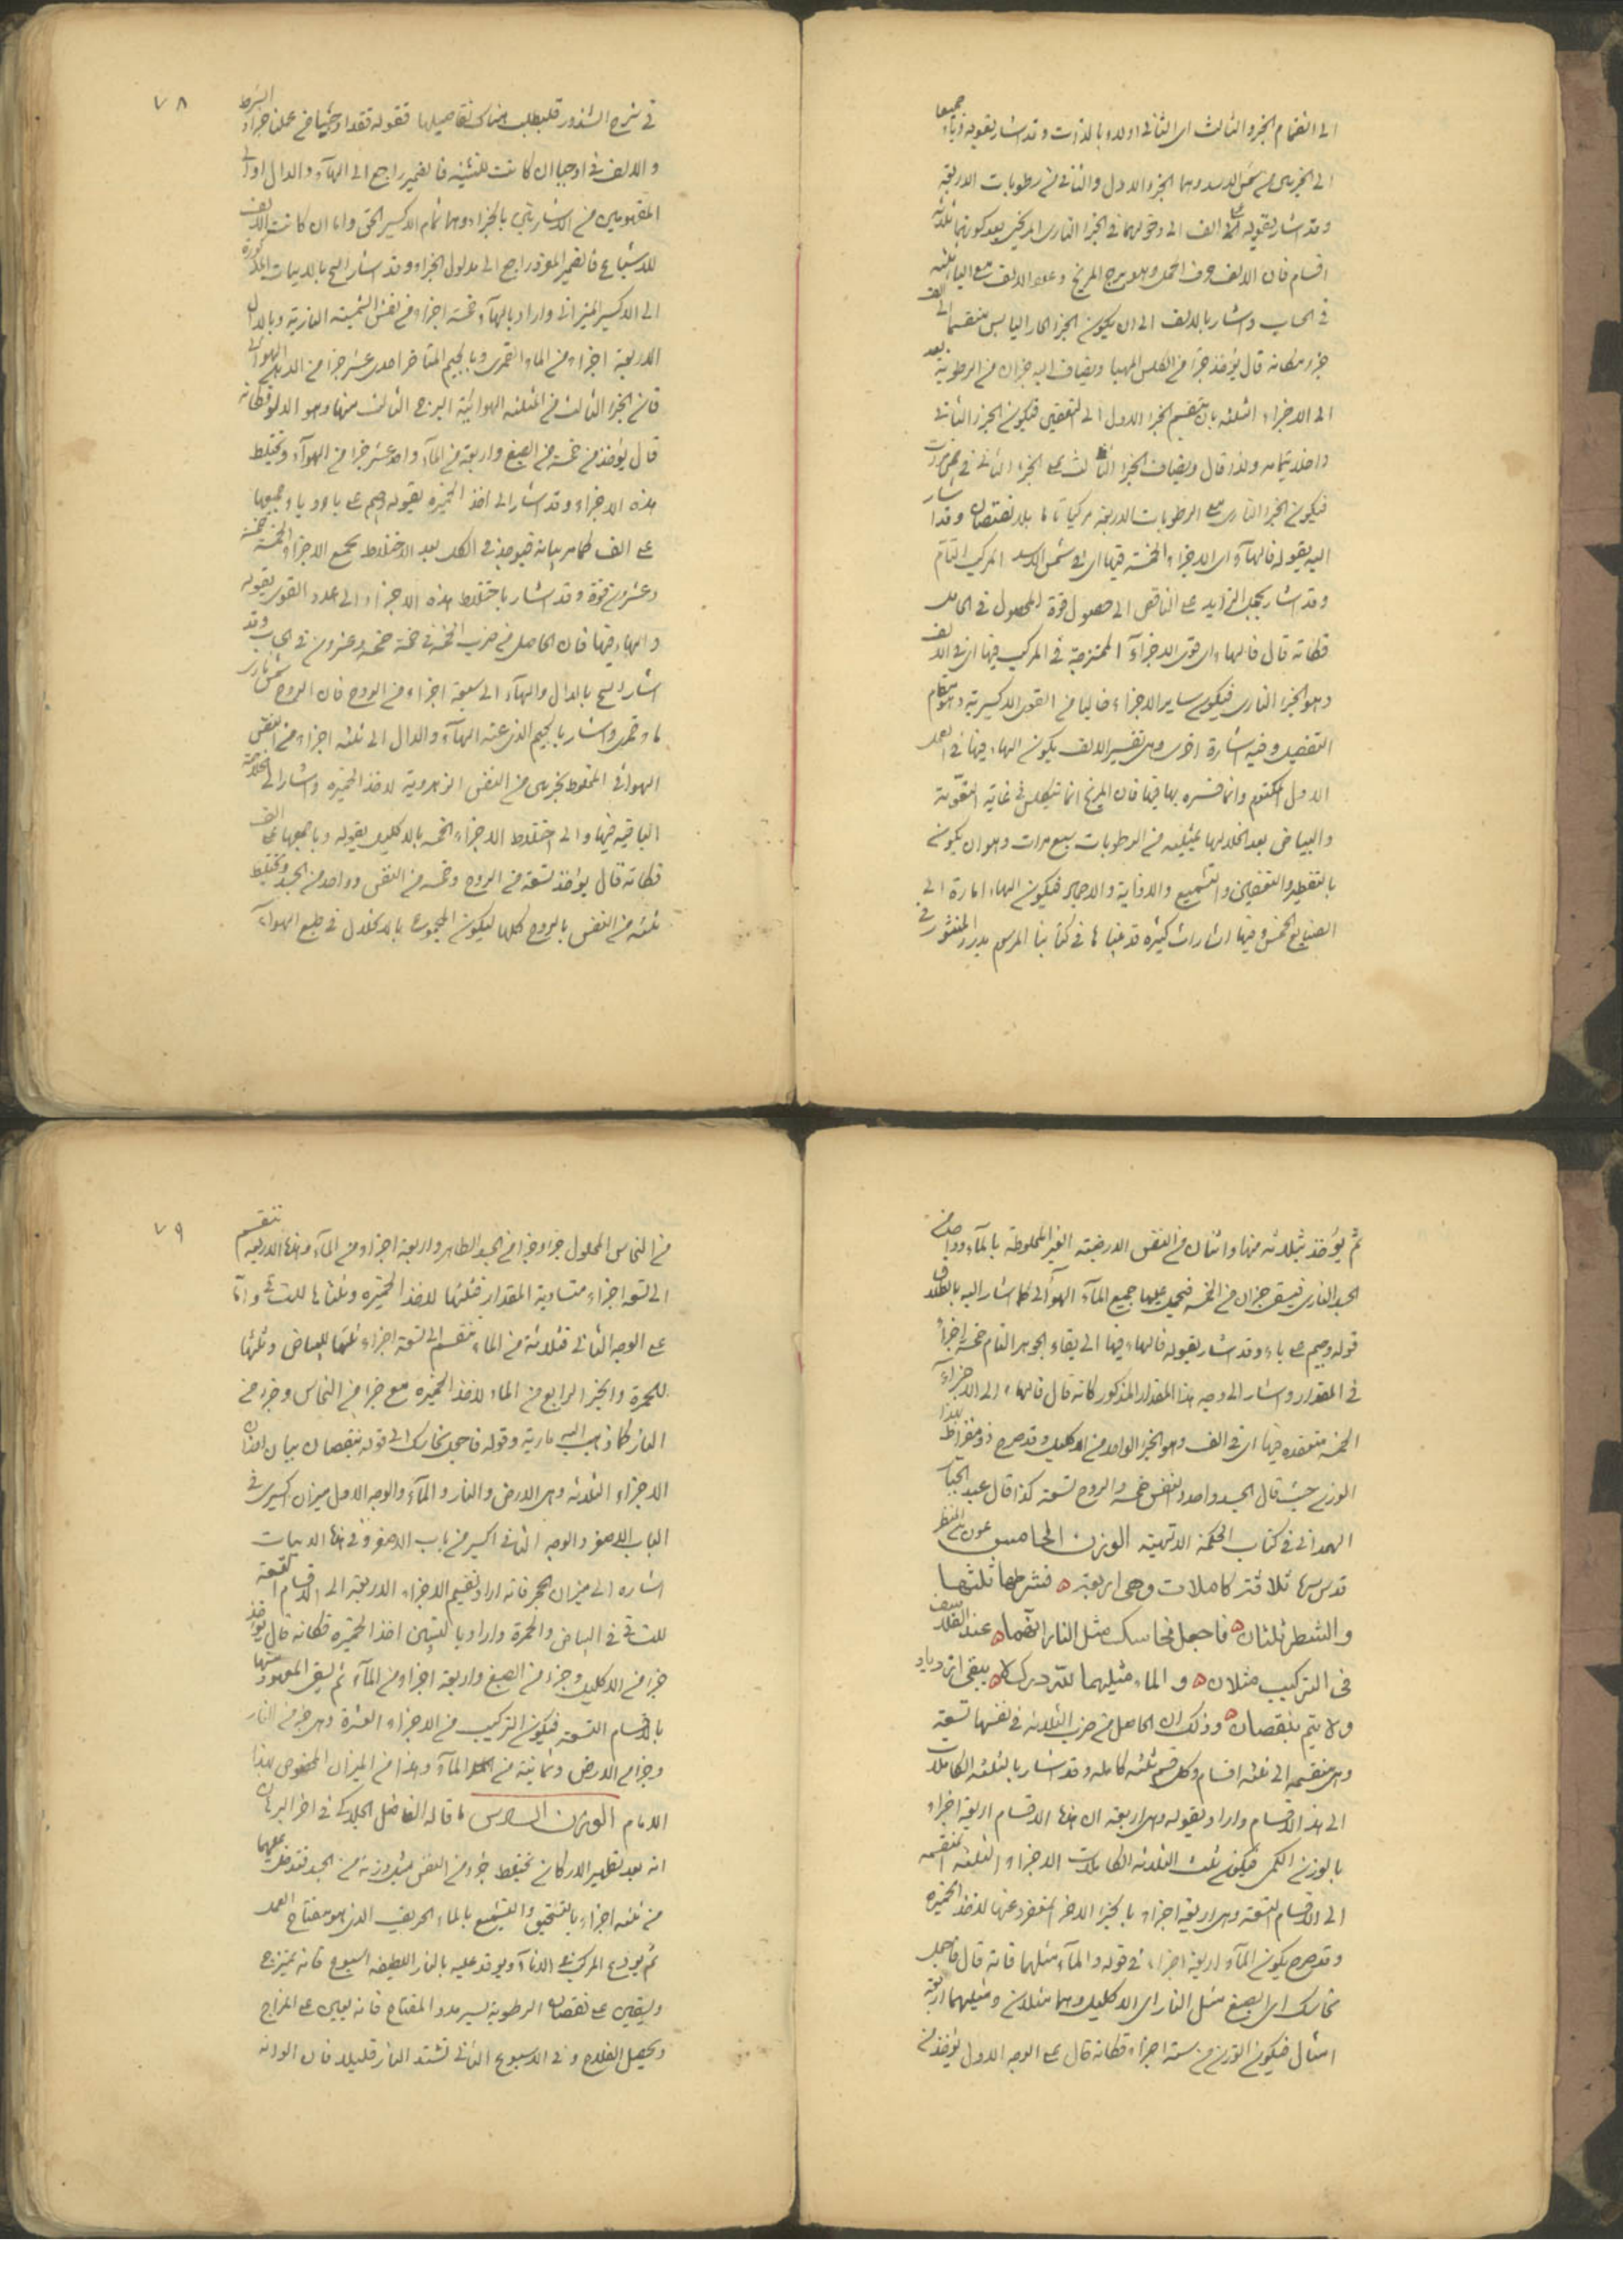 الى انضمام الجزء الثالث الى الثانى اولا وبالذات وقد اشار بقوله وباء جميعا
الى الجزئين من شمس الاسد وهما الجزء الاول والثانى من رطوبات الاربعة
وقد اشار بقوله على الف الى دخولهما فى الجزء النارى المريخى بعد كونهما ثلثة
اقسام فان الالف حرف الحمل وهو برج المريخ وعدد الالف مع الياء ثلثة
فى الحساب واشار بالالف الى ان يكون الجزء الحار اليابس منقسما الى الف
جزء فكانه قال يؤخذ جزء من الكلس المهيا ويضاف اليه جزآن من الرطوبة بعد
الى الاجزاء الثلثه بان ينقسم الجزء الاول الى النصفين فيكون الجزء الثانى
داخلا بتمامه ولذا قال ويضاف الجزء الثالث على الجزء الثانى فى مرات
فيكون الجزء النارى مع الرطوبات الاربعة مركبا تاما بلا نقصان وقد اشار
اليه بقوله فالهاء اى الاجزاء الخمسة فيها اى فى شمس الاسد المركب التام
وقد اشار بحمل الزايد على الناقص الى حصول قوة المحمول فى الحامل
فكانه قال فالهاء اى قوى الاجزاء الممتزجة فى المركب فيها اى فى الالف
وهو الجزء النارى فيكون ساير الاجزاء خاليا من القوى الاكسيرية وهو مقام
التفصيل وفيه اشارة اخرى وهى تفسير الالف بكون الهاء فيها فى العمل
الاول المكتوم وانما فسره بها فيها فان المريخ انما تكلس فى غاية النقوية
والبياض بعد انحلالها بمثليه من الرطوبات سبع مرات وهو ان يكون
بالتقطير والتعفين والتشميع والاذابة والاجماد فيكون الهاء اشارة الى
الصنايع الخمس وفيها اشارات كثيرة قد بيناها فى كتابنا المرسوم بدرر المنثور فى
٧٨
فى شرح الشذور فليطلب هناك تفاصيلها فقوله فقد اوجبا فى عملنا جزاء الشرط
والالف فى اوجبا ان كانت للتثنية فالضمير راجع الى الهاء والدال اولى
المفهومين من الاشارتين بالجزاء وهما تمام الاكسير الحق واما ان كانت الالف
للاشباع فالضمير المفرد راجع الى مدلول الجزاء وقد اشار الشيخ بالابيات المذكورة
الى الاكسير الميزانى واراد بالهاء خمسة اجزاء من نفس الشمسيه النارية وبالدال
الاربعة اجزاء من الماء القمرى وبالجيم المتاخر احدى عشر جزا من الدهن الهوائى
فان الجزء الثالث من المثلثه الهوائية البرج الثالث منها وهو الدلو فكانه
قال يؤخذ من خمسة من الصبغ واربعة من الماء واحد عشر جزا من الهواء وتختلط
هذه الاجزاء وقد اشار الى اخذ الخميرة بقوله وجيم على باء وباء وجميعها
على الف كما مر بيانه فيوجد فى الكل بعد الاختلاط بجمع الاجزاء الخمسة خمسة
وعشرون قوة وقد اشار باختلاط هذه الاجزاء والى عدد القوى بقوله
والهاء فيها فان الحاصل من ضرب الخمسة فى خمسة خمسة وعشرون فى الحساب وقد
اشار الشيخ بالدال والهاء الى سبعة اجزاء من الروح فان الروح شمس نارى
ماء قمرى واشار بالجيم الذى عنه الهاء والدال الى ثلثه اجزاء من النفس
الهوائى المخلوط بجزئين من النفس الزهروية لاخذ الخميرة واشار الى الثلاثة
الباقية فيها والى اختلاط الاجزاء الخمسه بالاكليل بقوله وباء جميعها على الف
فكانه قال يؤخذ تسعة من الروح وخمسة من النفس وواحد من الجسد وتختلط
ثلثه من النفس بالروح كلها ليكون المجموع بالانحلال فى طبع الهواء
ثم يؤخذ ثلاثه منها واثنان من النفس الارضية الغير المخلوطة بالماء وواحد من
الجسد النارى فيبقى جزآن من الخمسه فيحمل عليها جميع الماء الهوائى كما اشار اليه بالاطلاق
قوله وجيم على باء وقد اشار بقوله فالهاء فيها الى بقاء الجوهر التام خمسة اجزاء
فى المقدار واشار الى وجه هذا المقدار المذكور كانه قال فالهاء اى الاجزاء
الخمسة منعقدة فيها اى فى الف وهو الجزء الواحد من الاكليل وقد صرح ذو مقراط بهذا
الوزن حيث قال الجسد واحد والنفس خمسة والروح تسعة كذا قال عبد الجبار
الهمدانى فى كتاب الحكمة الالهية الوزن الخامس
قدس سره ثلاثة كاملات وهى اربعة فشرطها ثلثها
والشطر ثلثان فاجعل نحاسك مثل النار انهما عند التلايف
فى التركيب مثلان والماء مثليهما للتدرك لا يبقى ازدياد
ولا يتم بنقصان وذلك ان الحاصل من ضرب الثلاثة فى نفسها تسعة
وهى منقسمه الى ثلثه اقسام وكل قسم ثلثه كامله وقد اشار بالثلثه الكاملات
الى هذه الاقسام واراد بقوله وهى اربعة ان هذه الاقسام اربعة اجزاء
بالوزن الكمى فيكون ثلث الثلاثة الكاملات الاجزاء الثلثه المنقسمه
الى الاقسام التسعة وهى اربعة اجزاء بالجزء الاخر المنفرد عنها لاخذ الخميرة
وقد صرح بكون الماء اربعة اجزاء فى قوله والماء مثليهما فانه قال فاجعل
نحاسك اى الصبغ مثل النار اى الاكليل وهما مثلان ومثليهما اربعة
امثال فيكون الوزن من ستة اجزاء فكانه قال على الوجه الاول يؤخذ من
٧٩
من النحاس المحلول جزء وجزء من الجسد الطاهر واربعة اجزاء من الماء وهذه الاربعة تنقسم
الى تسعة اجزاء متساوية المقدار فثلثها لاخذ الخميرة وثلثاها للتساقى واما
على الوجه الثانى فثلاثة من الماء تنقسم الى تسعة اجزاء ثلثها للبياض وثلثها
للحمرة والجزء الرابع من الماء لاخذ الخميرة مع جزء من النحاس وجزء من
النار كما ذهب اليه مارية وقوله فاجعل نحاسك الى قوله بنقصان بيان اوزان
الاجزاء الثلاثة وهى الارض والنار والماء والوجه الاول ميزان اكسيرى فى
الباب الاصغر والوجه الثانى اكسير من باب الاصغر وفى هذه الابيات
اشاره الى ميزان الحجر فانه اراد تقسيم الاجزاء الاربعة الى الاقسام التسعة
للتساقى فى البياض والحمرة واراد بالتبيين اخذ الخميرة فكانه قال يؤخذ
جزء من الاكليل وجزء من الصبغ واربعة اجزاء من الماء ثم يسقى المعهود منها
بالاقسام التسعة فيكون التركيب من الاجزاء العشرة وهى جزء من النار
وجزء من الارض وثمانية من الماء وهذا من الميزان المخصوص بهذا
الامام الوزن السادس ما قاله الفاضل الجلدكى فى اخر البرهان
انه بعد تطهير الاركان تختلط جزء من النفس بمثل وزنه من الجسد فتدخلت عليهما
من ثلثه اجزاء بالتسحيق والتشميع بالماء الحريف الذى هو مفتاح العمل
ثم يودع المركب فى الاناء ويوقد عليه بالنار اللطيفه اسبوع فانه يمتزج
ويبقين على نقصان الرطوبة يسير مدد المفتاح فانه يعين على المزاج
ويحصل الفلاح وفى الاسبوع الثانى تشتد النار قليلا فان الوانه